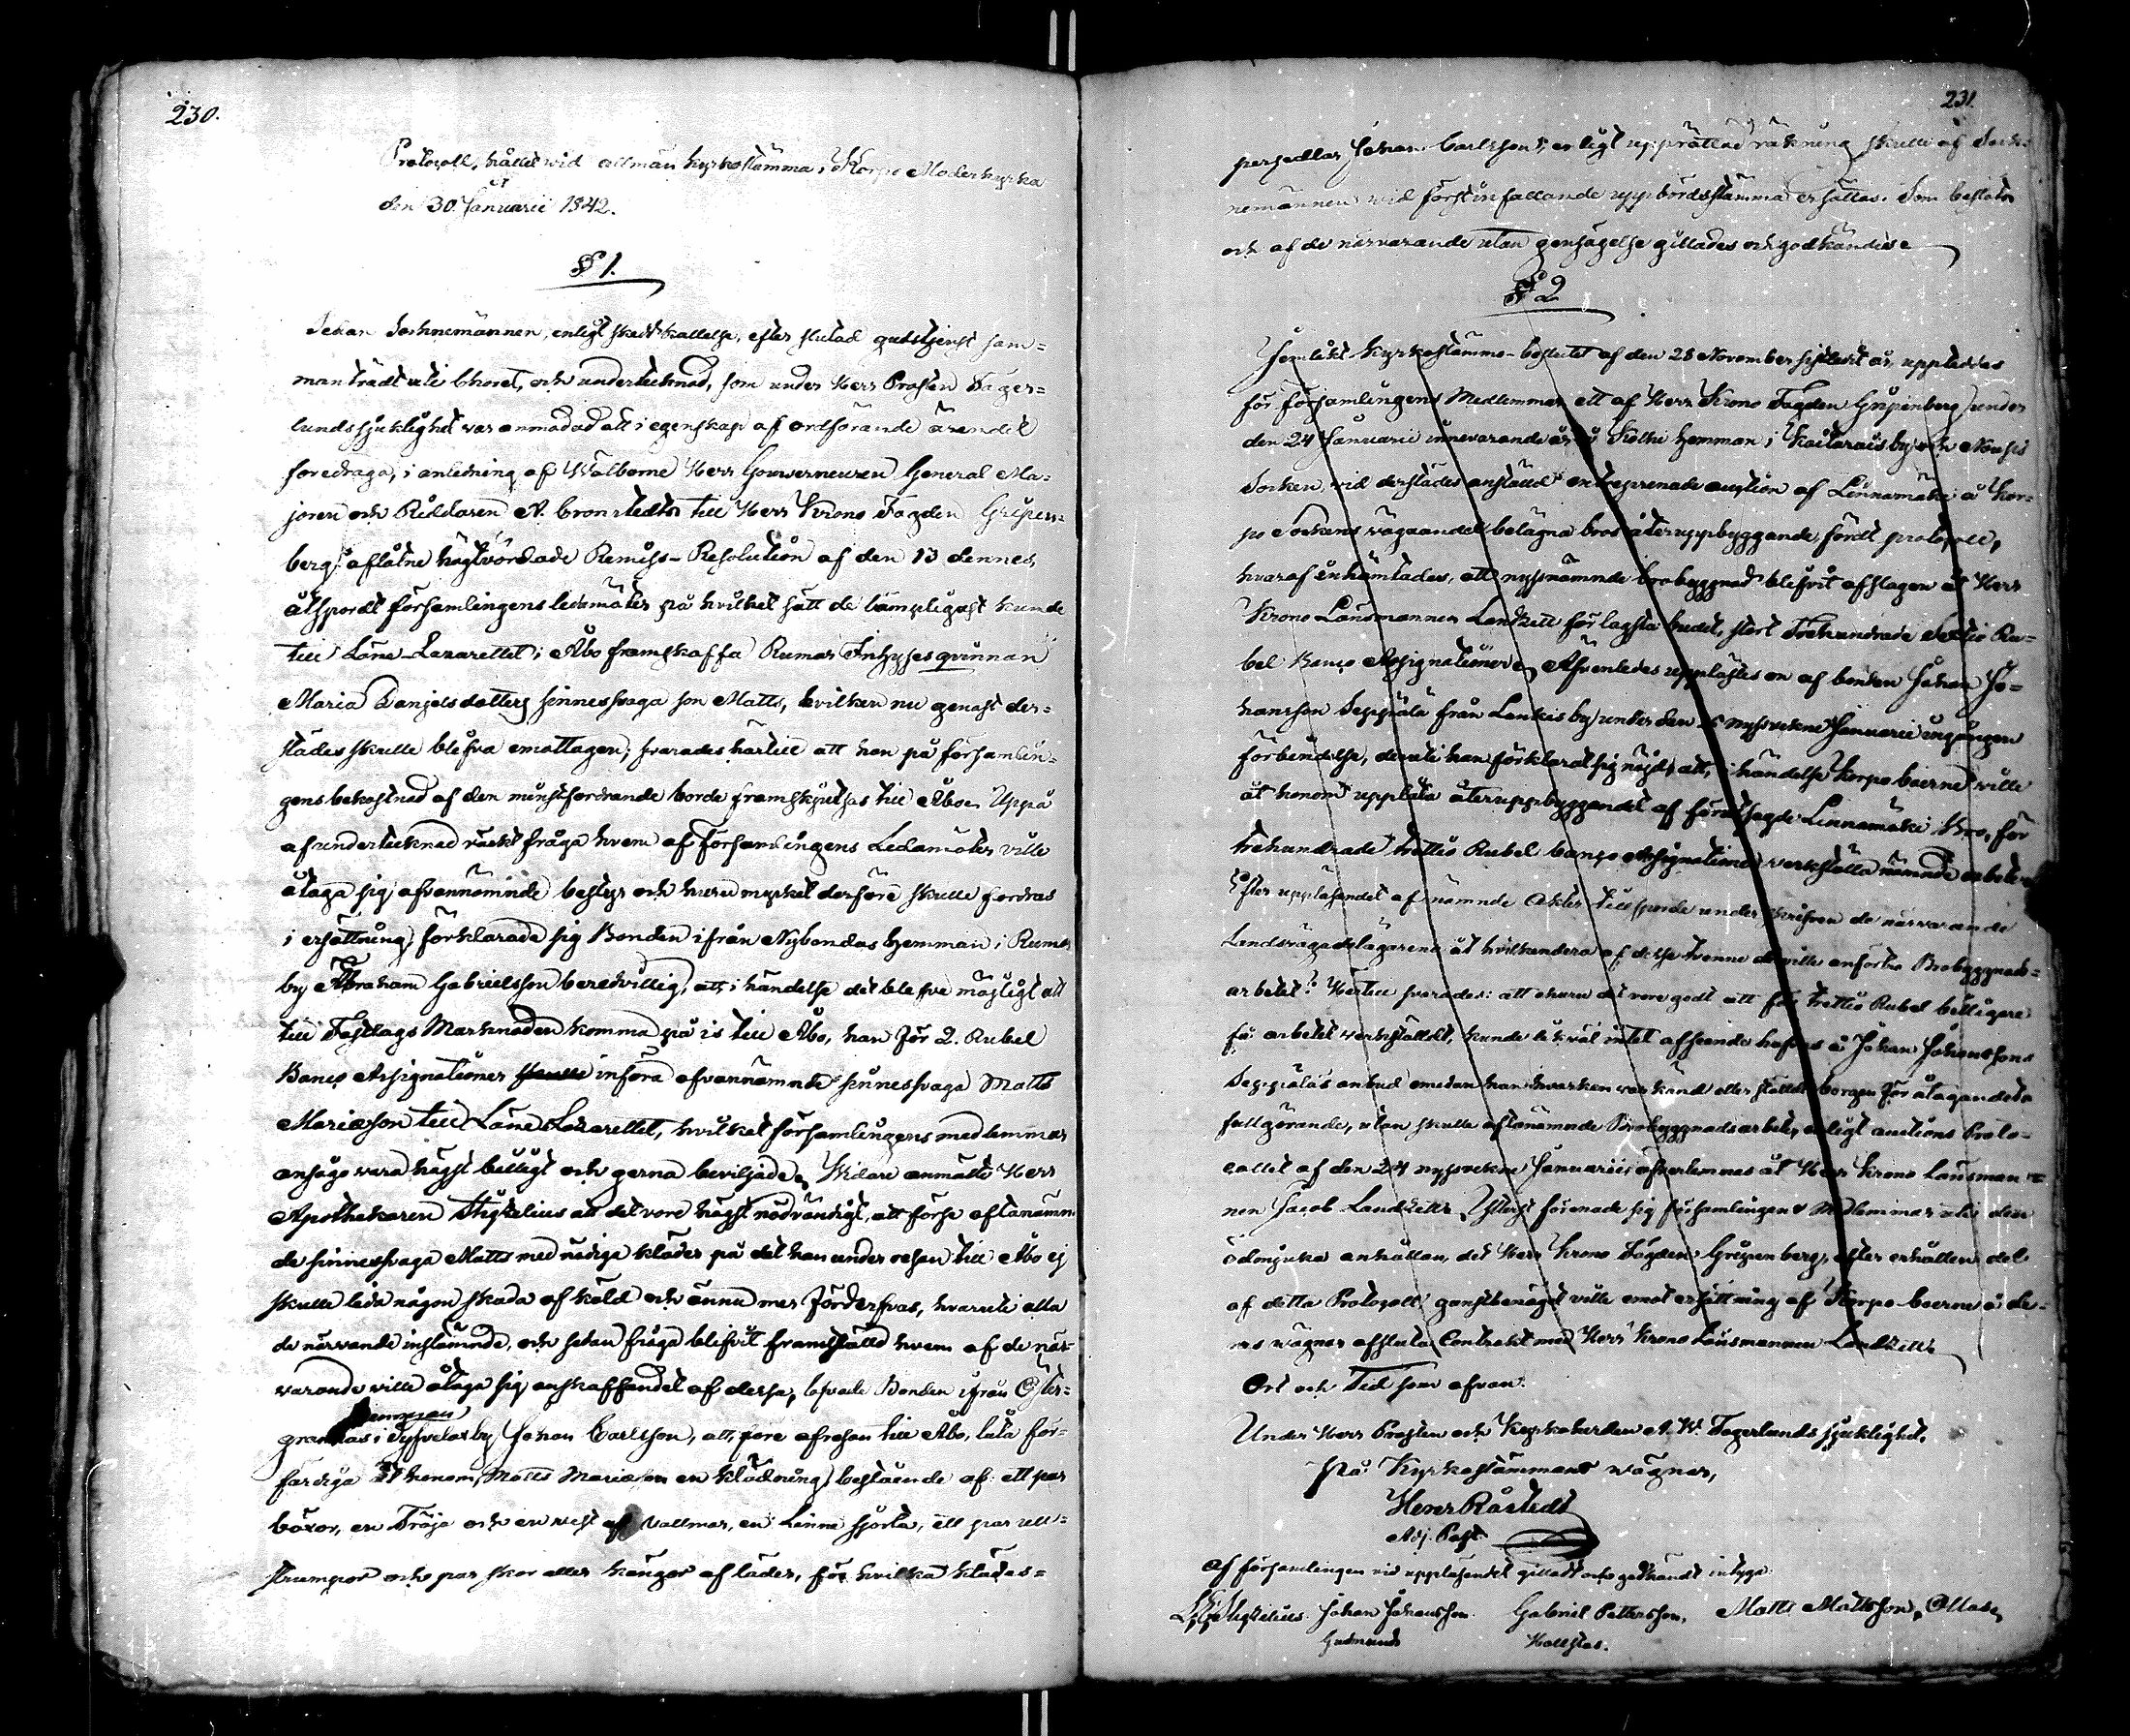 230.
Protocoll, hållit wid allmän kyrkostämma i Korpo Moderkyrka
den 30. Januarii 1842.
§ 1.
Sedan Socknemännen, enligt skedd kallelse, efter slutad gudstjenst sam=
manträdt uti Choret, och undertecknad, som under Herr Prosten Fager=
lunds sjuklighet var anmodad att i egenskap af ordförande ärendet
föredraga, i anledning af Wälborne Herr Gouverneuren General Ma=
joren och Riddaren A. Cronstedts till Herr Krono Fogden Gripen=
berg aflåtne högtvördade Remiss-Resolution af den 13 dennes,
åtspordt församlingens ledamöter på hvilket sätt de lämpligast kunde
till Läne-Lazarettet i Åbo framskaffa Rumar Inhyses qvinnan
Maria Danjelsdotters sinnessvaga son Matts, hvilken nu genast der=
städes skulle blifva emottagen; svarades härtill att han på församlin=
gens bekostnad af den minstfordrande borde framskjutsas till Åbo. Uppå
af undertecknad väckt fråga hvem af församlingens Ledamöter ville
åtaga sig ofvannämnde bestyr och huru mycket derföre skulle fordras
i ersättning, förklarade sig Bonden ifrån Nybondas hemman i Rumar
by Abraham Gabrielsson beredvillig, att, i händelse det blefve möjligt att
till Fastlags Marknaden komma på is till Åbo, han för 2. Rubel
Banco Assignationer skulle införa ofvannämnde sinnessvaga Matts
Mariæson till Läne Lazarettet, hvilket församlingens medlemmar
ansågo vara högst billigt och gerna beviljade. Widare anmälte Herr
Apothekaren Stigzelius att det vore högst nödvändigt, att förse oftanämn=
de sinnessvaga Matts med nödiga kläder på det han under resan till Åbo ej
skulle lida någon skada af köld och ännu mer förderfvas, hvaruti alla
de närvande instämde, och sedan fråga blifvit framställd hvem af de när=
varande ville åtaga sig anskaffandet af dessa, lofvade Bonden ifrån Öster=
hemman
grannas i Tyfvelax by Johan Carlsson, att före afresan till Åbo, låta för=
färdiga åt honom, Matts Mariæson en klädning, bestående af: ett par
böxor, en Tröja och en vest af Vallmar, en Linne skjorta, ett par ull=
strumpor och par skor eller kängor af läder, för hvilka klädes=
231.
persedlar Johan Carlsson, enligt upprättad räkning skulle af Sock=
nemännen wid först infallande uppbördsstämma ersättas. Som beslöts
och af de närvarande utan gensägelse gillades och godkändes.
§ 2
Jemlikt kyrkostämmo-beslutet af den 28 November sistledit år, upplästes
för församlingens Medlemmar ett af Herr Krono Fogden Gripenberg under
den 24 Januarii innevarande år å hemman i by och Nousis
Socken, vid derstädes anställd entreprenade auction af Linnamäki å Kor=
po Sockens vägaandel belägna bros återuppbyggande fördt protocoll,
hvaraf inhämtades, att nyssnämnde brobyggnad blifvit afslagen åt Herr
Krono Länsmannen Landzett för lägsta budet, stort Trehundrade Sextio Ru=
bel Banco Assignationer. Äfvenledes upplästes en af bonden Johan Jo=
hansson Seppälä från Lankis by under den nyssvekne Januarii ingången
förbindelse, deruti han förklarat sig nöjd, att, i händelse Korpo boerne ville
åt honom upplåta återuppbyggandet af förutsagde Linnamäki Bro, för
trehundrade trettio Rubel banco Assignationer verkställa nämnde arbete.
Efter uppläsandet af nämnde akter tillsporde underskrifven de närvarande
Landsvägadelägarena åt hvilkendera af desse tvenne de ville anförtro Brobyggnads=
arbetet? Hertill svarades: att ehuru det vore godt att för trettio Rubel billigare
få arbetet verkstäldt, kunde likväl intet afseende hafvas å Johan Johanssons
Seppälä's anbud emedan han hvarken var känd eller stält borgen för åtagandets
fullgörande, utan skulle oftanämnde Brobyggnadsarbete, enligt auctions Proto=
collet af den 24 nyssvekne Januarii, öfverlemnas åt Herr Krono Länsman=
nen Jacob Landzett. Ytterst förenade sig församlingens Medlemmar uti den
ödmjuka anhållan, det Herr Krono Fogden Gripenberg, efter erhållen del
af detta Protocoll gunstbenäget ville emot ersättning af Korpo boerne å de=
ras wägnar afsluta Contrakt med Herr Krono Länsmannen Landzett.
Ort och Tid som ofvan.
Under Herr Prosten och Kyrkoherden A. W. Fagerlunds sjuklighet,
På Kyrkostämmans wägnar,
Henr Råstedt
Adj. Past.
Af församlingen vid uppläsandet gilladt och godkändt intyga:
Stigzelius. Johan Johansson. Gabriel Pettersson, Matts Mattsson,
Gudmunds Hallstas.